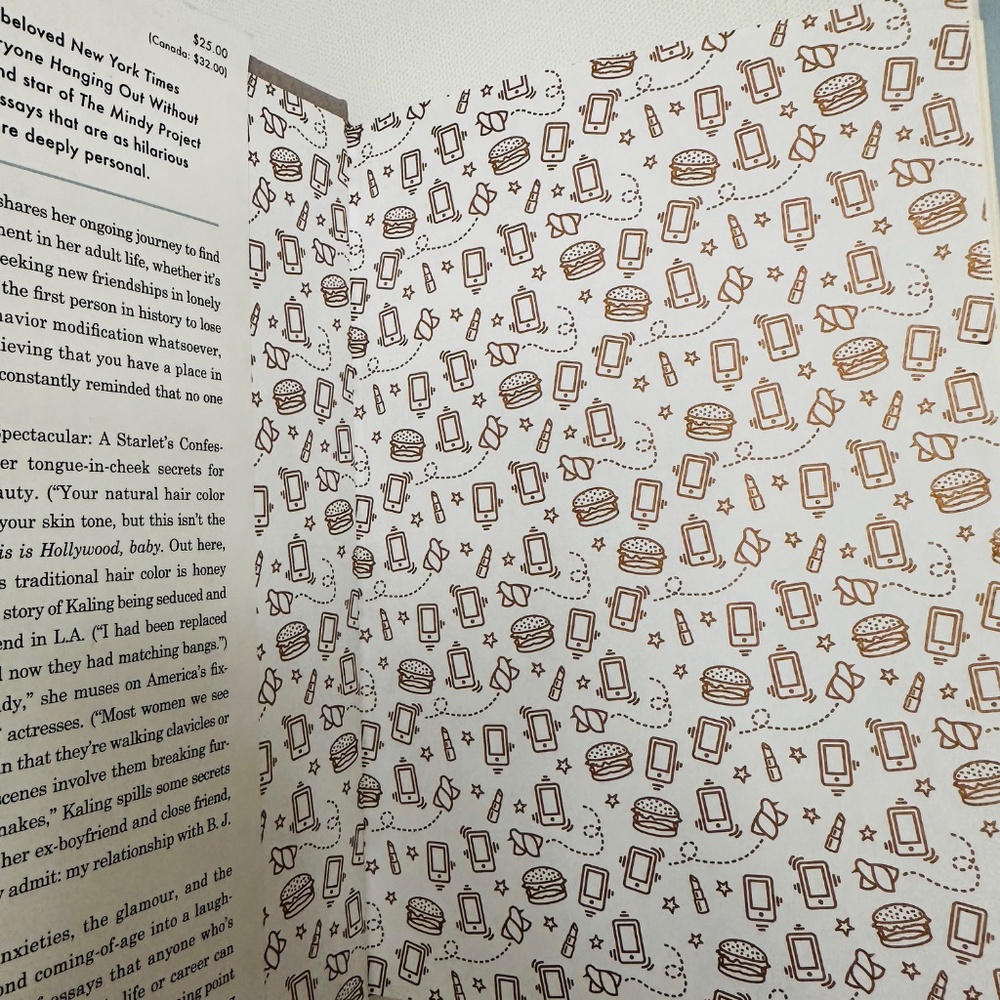 $25.00
(Canada: $32.00)
beloved New York Times
ryone Hanging Out Without
nd star of The Mindy Project
ssays that are as hilarious
re deeply personal.
shares her ongoing journey to find
ment in her adult life, whether it's
eeking new friendships in lonely
the first person in history to lose
havior modification whatsoever,
lieving that you have a place in
constantly reminded that no one
Spectacular: A Starlet's Confes-
er tongue-in-cheek secrets for
auty. (“Your natural hair color
your skin tone, but this isn't the
is is Hollywood, baby. Out here,
s traditional hair color is honey
story of Kaling being seduced and
end in L.A. (“I had been replaced
now they had matching bangs.”)
dy,” she muses on America's fix-
actresses. (“Most women we see
n that they're walking clavicles or
scenes involve them breaking fur-
nakes,” Kaling spills some secrets
her ex-boyfriend and close friend,
admit: my relationship with B. J.
nxieties, the glamour, and the
ond coming-of-age into a laugh-
of essays that anyone who's
life or career can
point